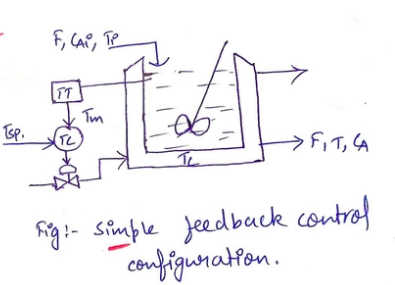 F, CAi, Ti
TT
Tm
Tsp.
TC
Tc
F, T, CA
Fig:- Simple feedback control
configuration.